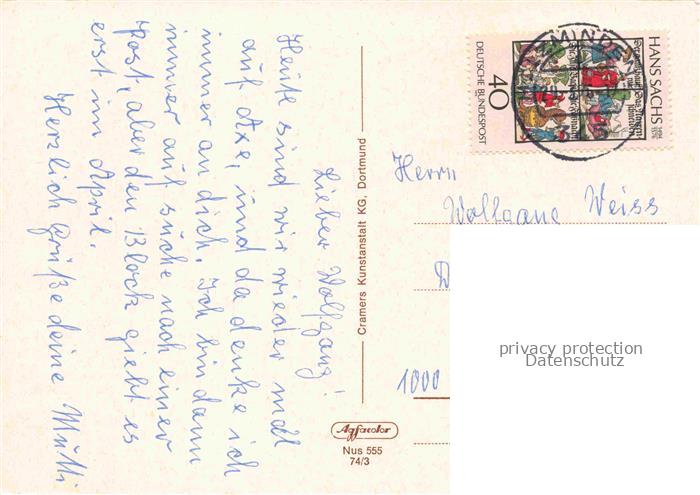 Lieber Wolfgang!
Heute sind wir wieder mal
auf Axe, und da denke ich
immer an dich. Ich bin dann
immer auf suche nach einer
post, aber den Block giebt es
erst im April.
Herzlich Grüße deine Mutti
Cramers Kunstanstalt KG, Dortmund
Agfacolor
Nus 555
74/3
HANS SACHS
DEUTSCHE BUNDESPOST
40
MINDEN
Herrn
Wolfgang Weiss
D
1000
privacy protection
Datenschutz